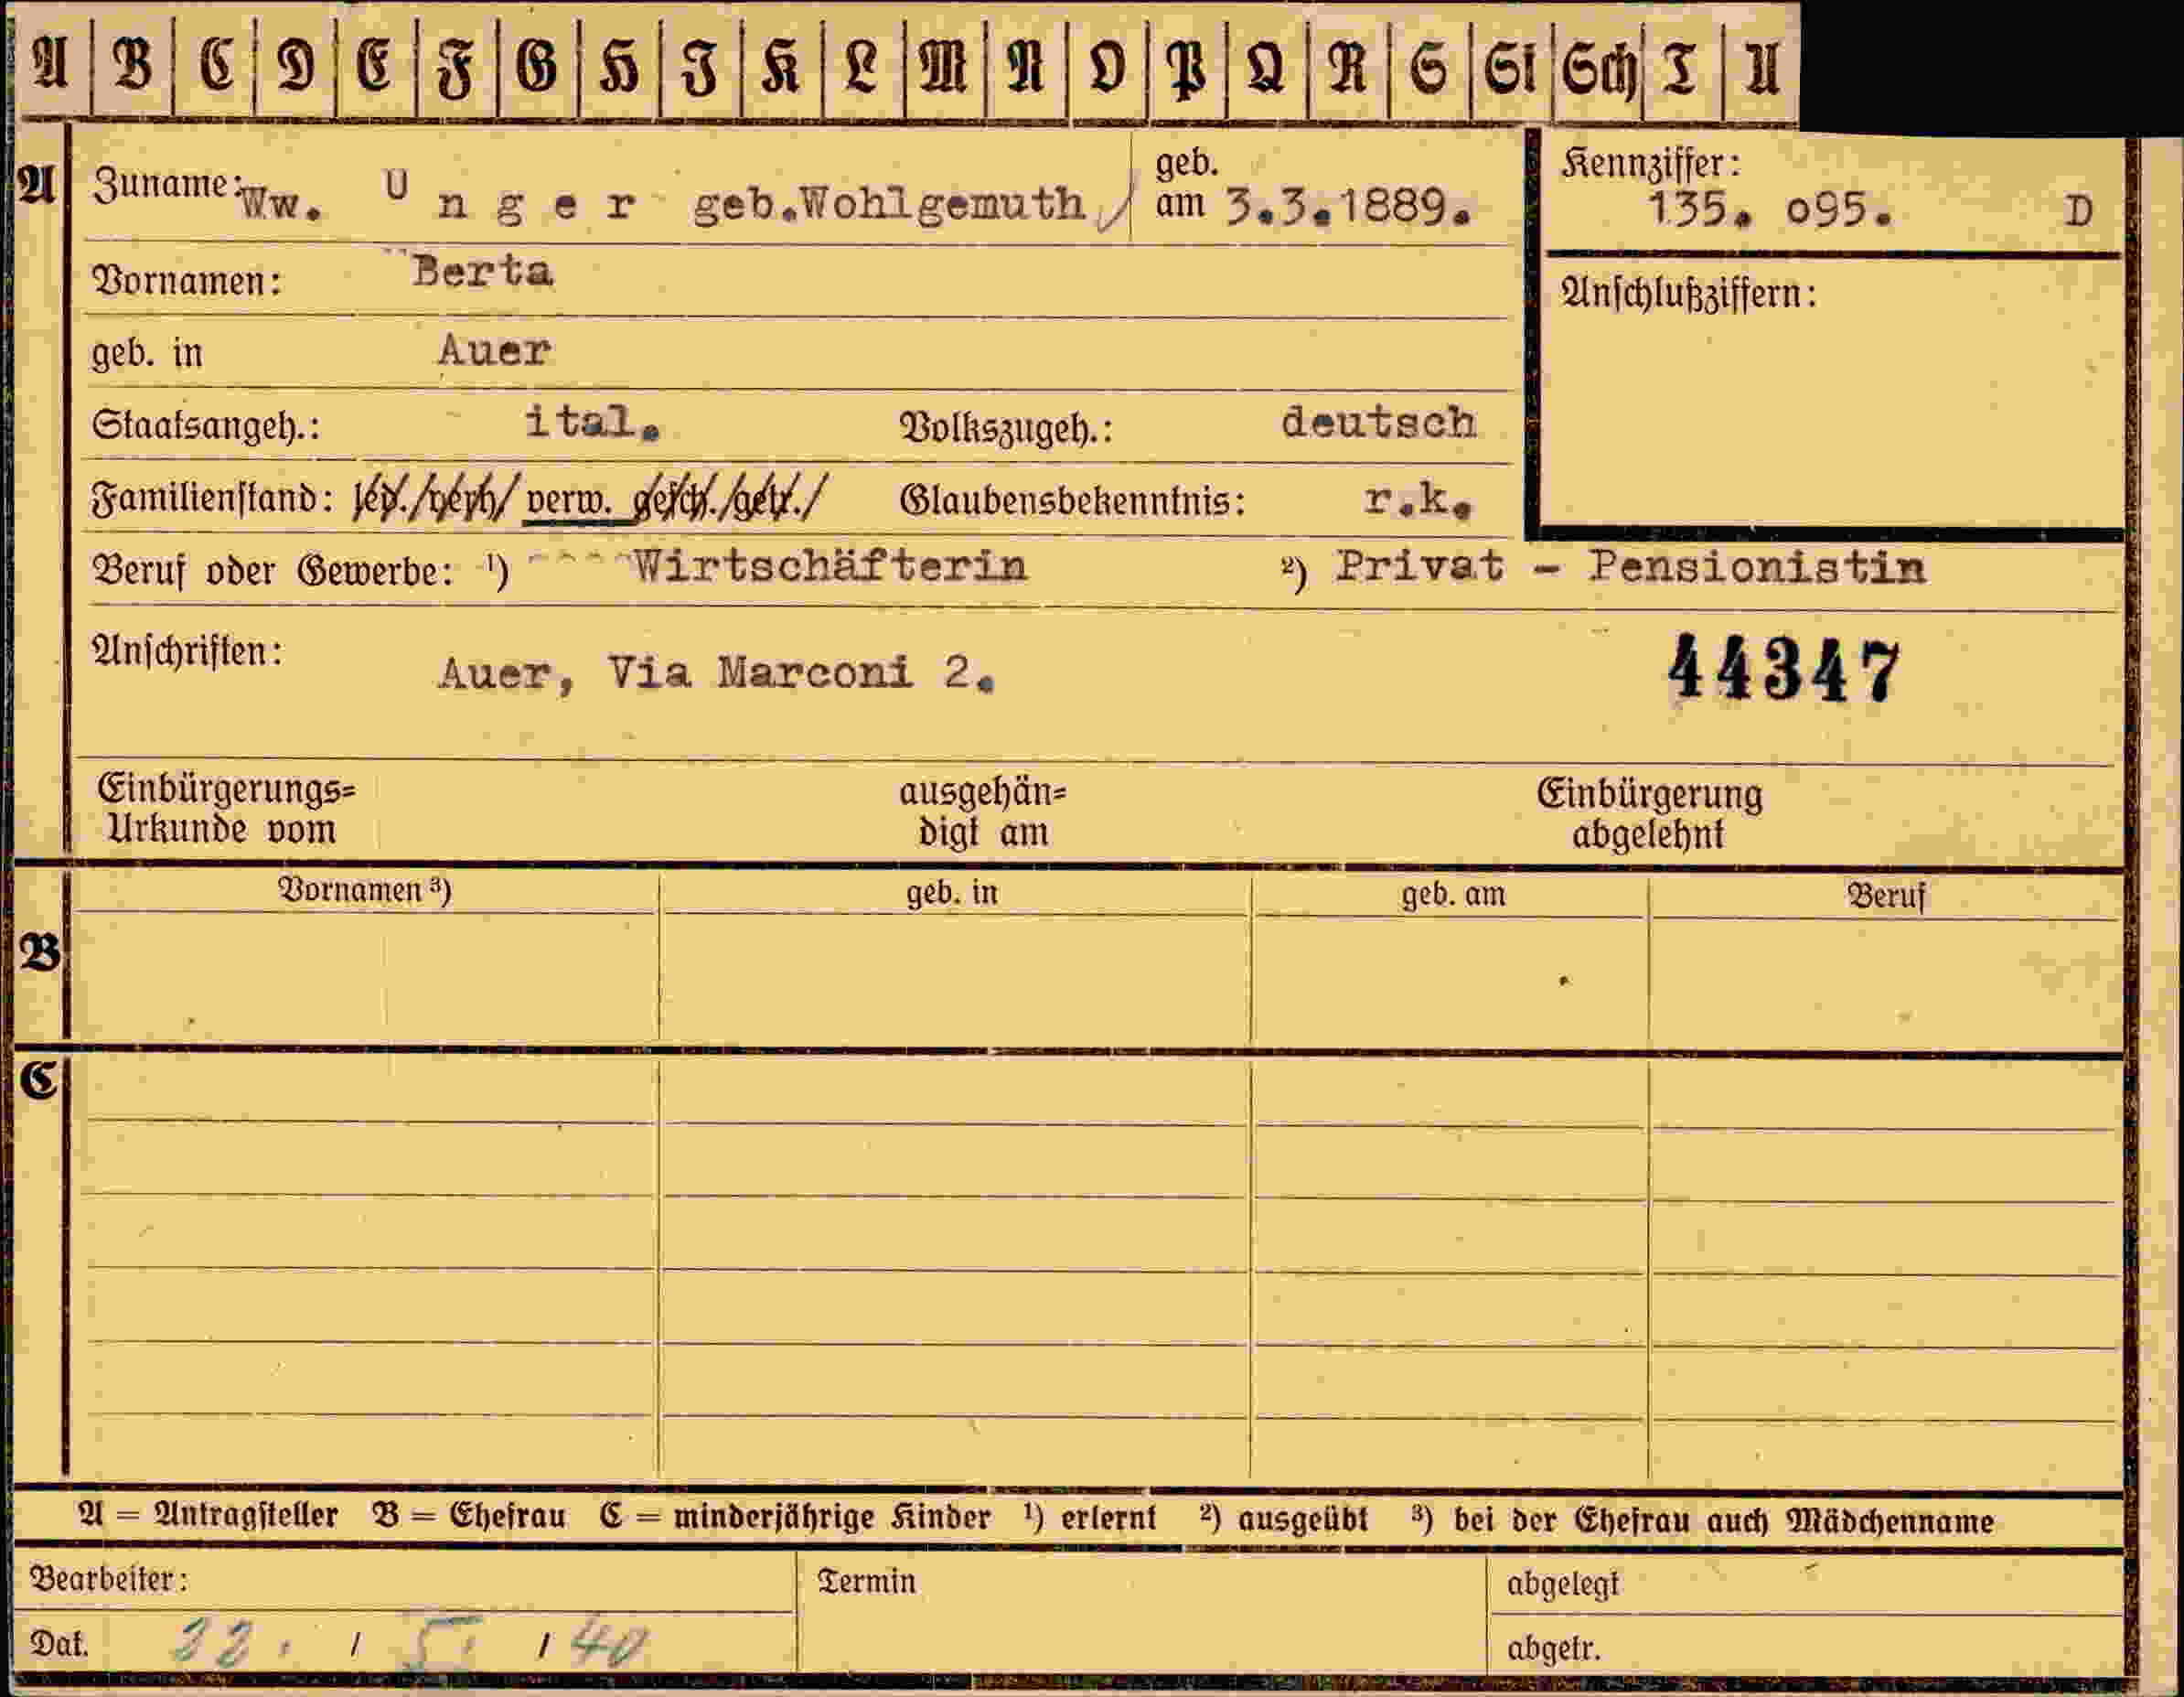 A B C D E F G H I K L M N O P Q R S St Sch T U
A Zuname: Ww. U n g e r geb.Wohlgemuth geb. am 3.3.1889. Kennziffer: 135. o95. D
Vornamen: Berta Anschlußziffern:
geb. in Auer
Staatsangeh.: ital. Volkszugeh.: deutsch
Familienstand: led./verh/ verw. gesch./getr./ Glaubensbekenntnis: r.k.
Beruf oder Gewerbe: ¹) Wirtschäfterin ²) Privat - Pensionistin
Anschriften: Auer, Via Marconi 2. 44347
Einbürgerungs= ausgehän= Einbürgerung
Urkunde vom digt am abgelehnt
Vornamen ³) geb. in geb. am Beruf
B
C
A = Antragsteller B = Ehefrau C = minderjährige Kinder ¹) erlernt ²) ausgeübt ³) bei der Ehefrau auch Mädchenname
Bearbeiter: Termin abgelegt
Dat. 22. / 5. / 40 abgetr.